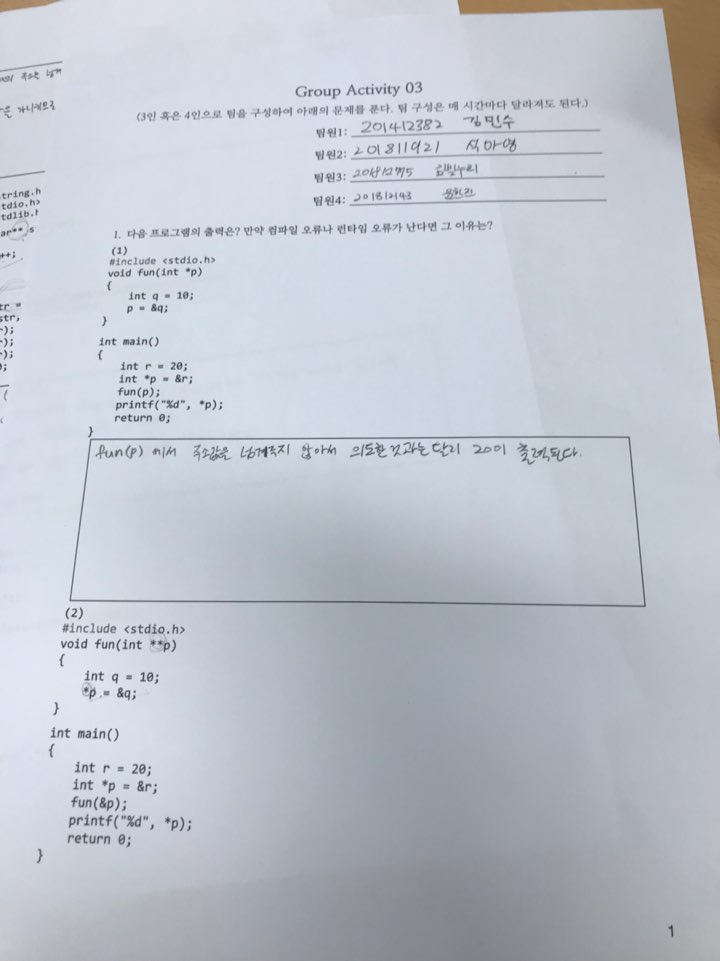 Group Activity 03
(3인 혹은 4인으로 팀을 구성하여 아래의 문제를 푼다. 팀 구성은 매 시간마다 달라져도 된다.)
팀원1: 201412382 김민수
팀원2: 201811921 석아영
팀원3:
팀원4: 201812143
1. 다음 프로그램의 출력은? 만약 컴파일 오류나 런타임 오류가 난다면 그 이유는?
(1)
#include <stdio.h>
void fun(int *p)
{
int q = 10;
p = &q;
}
int main()
{
int r = 20;
int *p = &r;
fun(p);
printf("%d", *p);
return 0;
}
fun(p) 에서 주소값을 넘겨주지 않아서 의도한 것과는 달리 20이 출력된다.
(2)
#include <stdio.h>
void fun(int **p)
{
int q = 10;
*p = &q;
}
int main()
{
int r = 20;
int *p = &r;
fun(&p);
printf("%d", *p);
return 0;
}
1
tring.h
tdio.h>
tdlib.h
ar** s
++;
tr =
str,
);
);
);
;